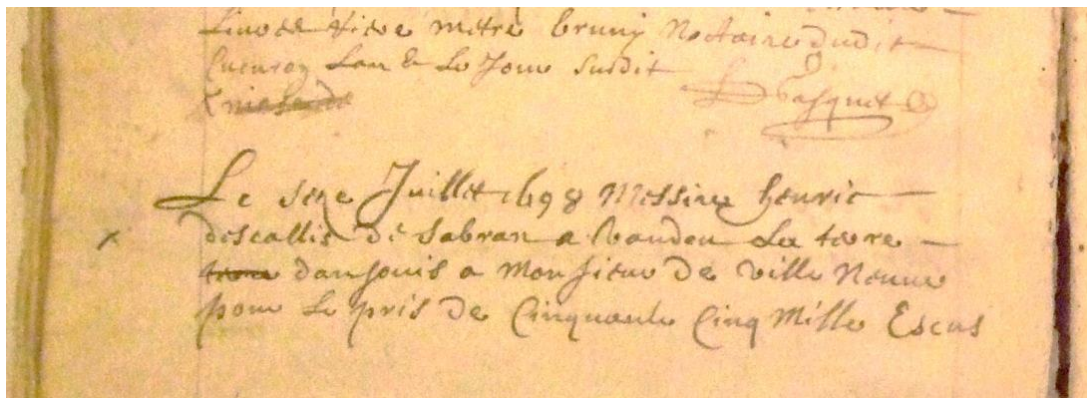 vive metre bruny Nottaire dudit
Cucuron Lan & Le Jour susdit
D basquet
Le seze Juillet 1698 Messire henric
x descallis de Sabran a vandeu La terre
dansouis a Monsieur de ville Neuve
pour Le pris de Cinquante Cinq Mille Escus